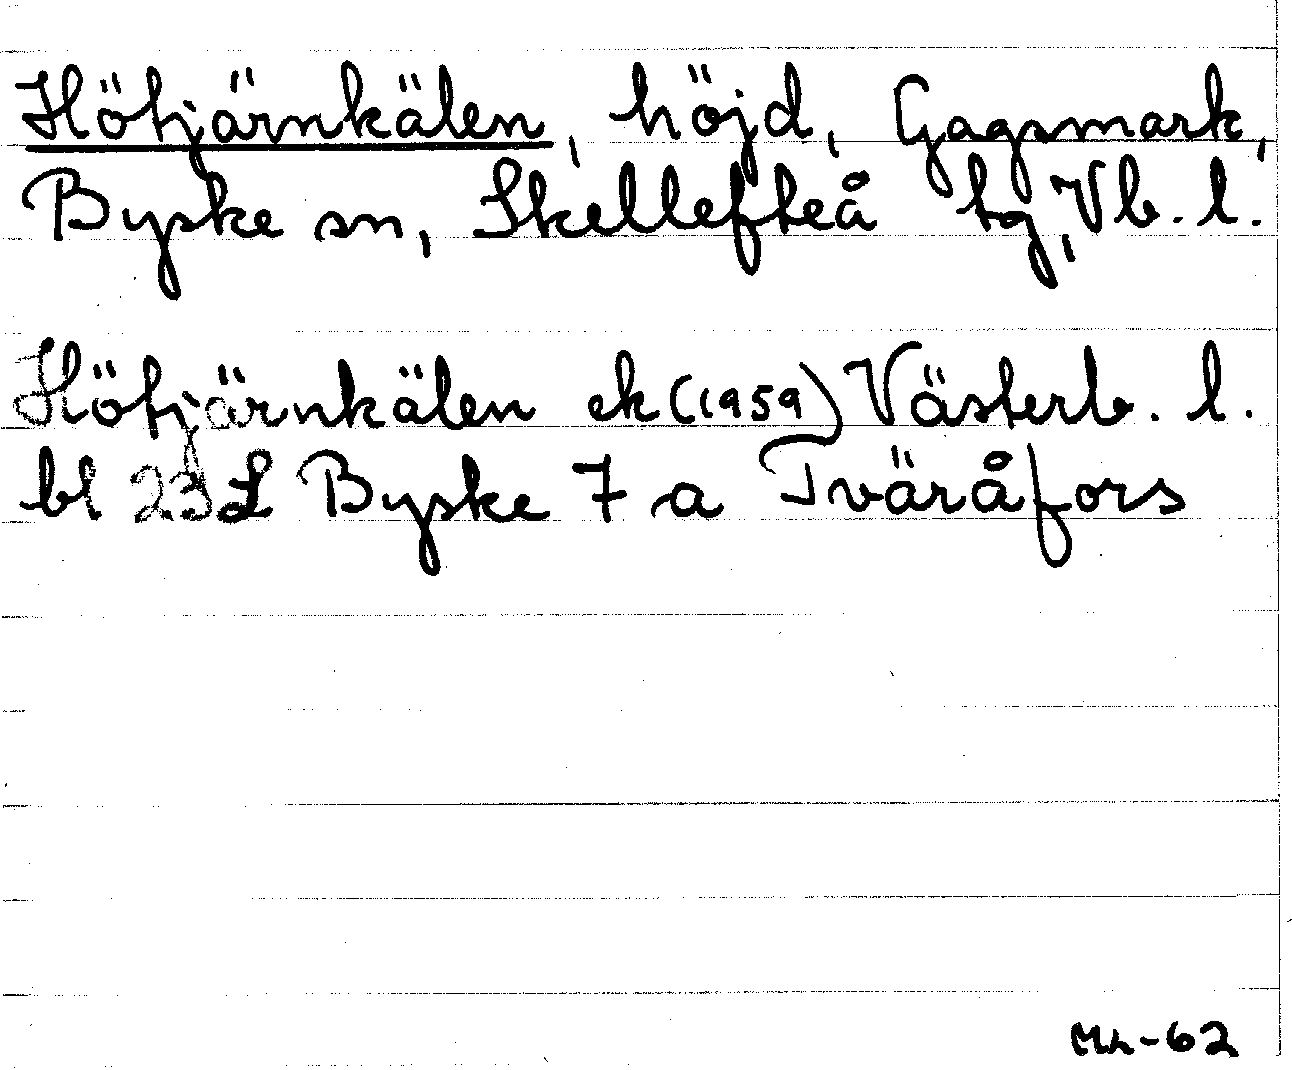 Hötjärnkälen, höjd, Gagsmark,
Byske sn, Skellefteå tg, Vb. l.
Hötjärnkälen ek (1959) Västerb. l.
bl 23 L Byske 7 a Tväråfors